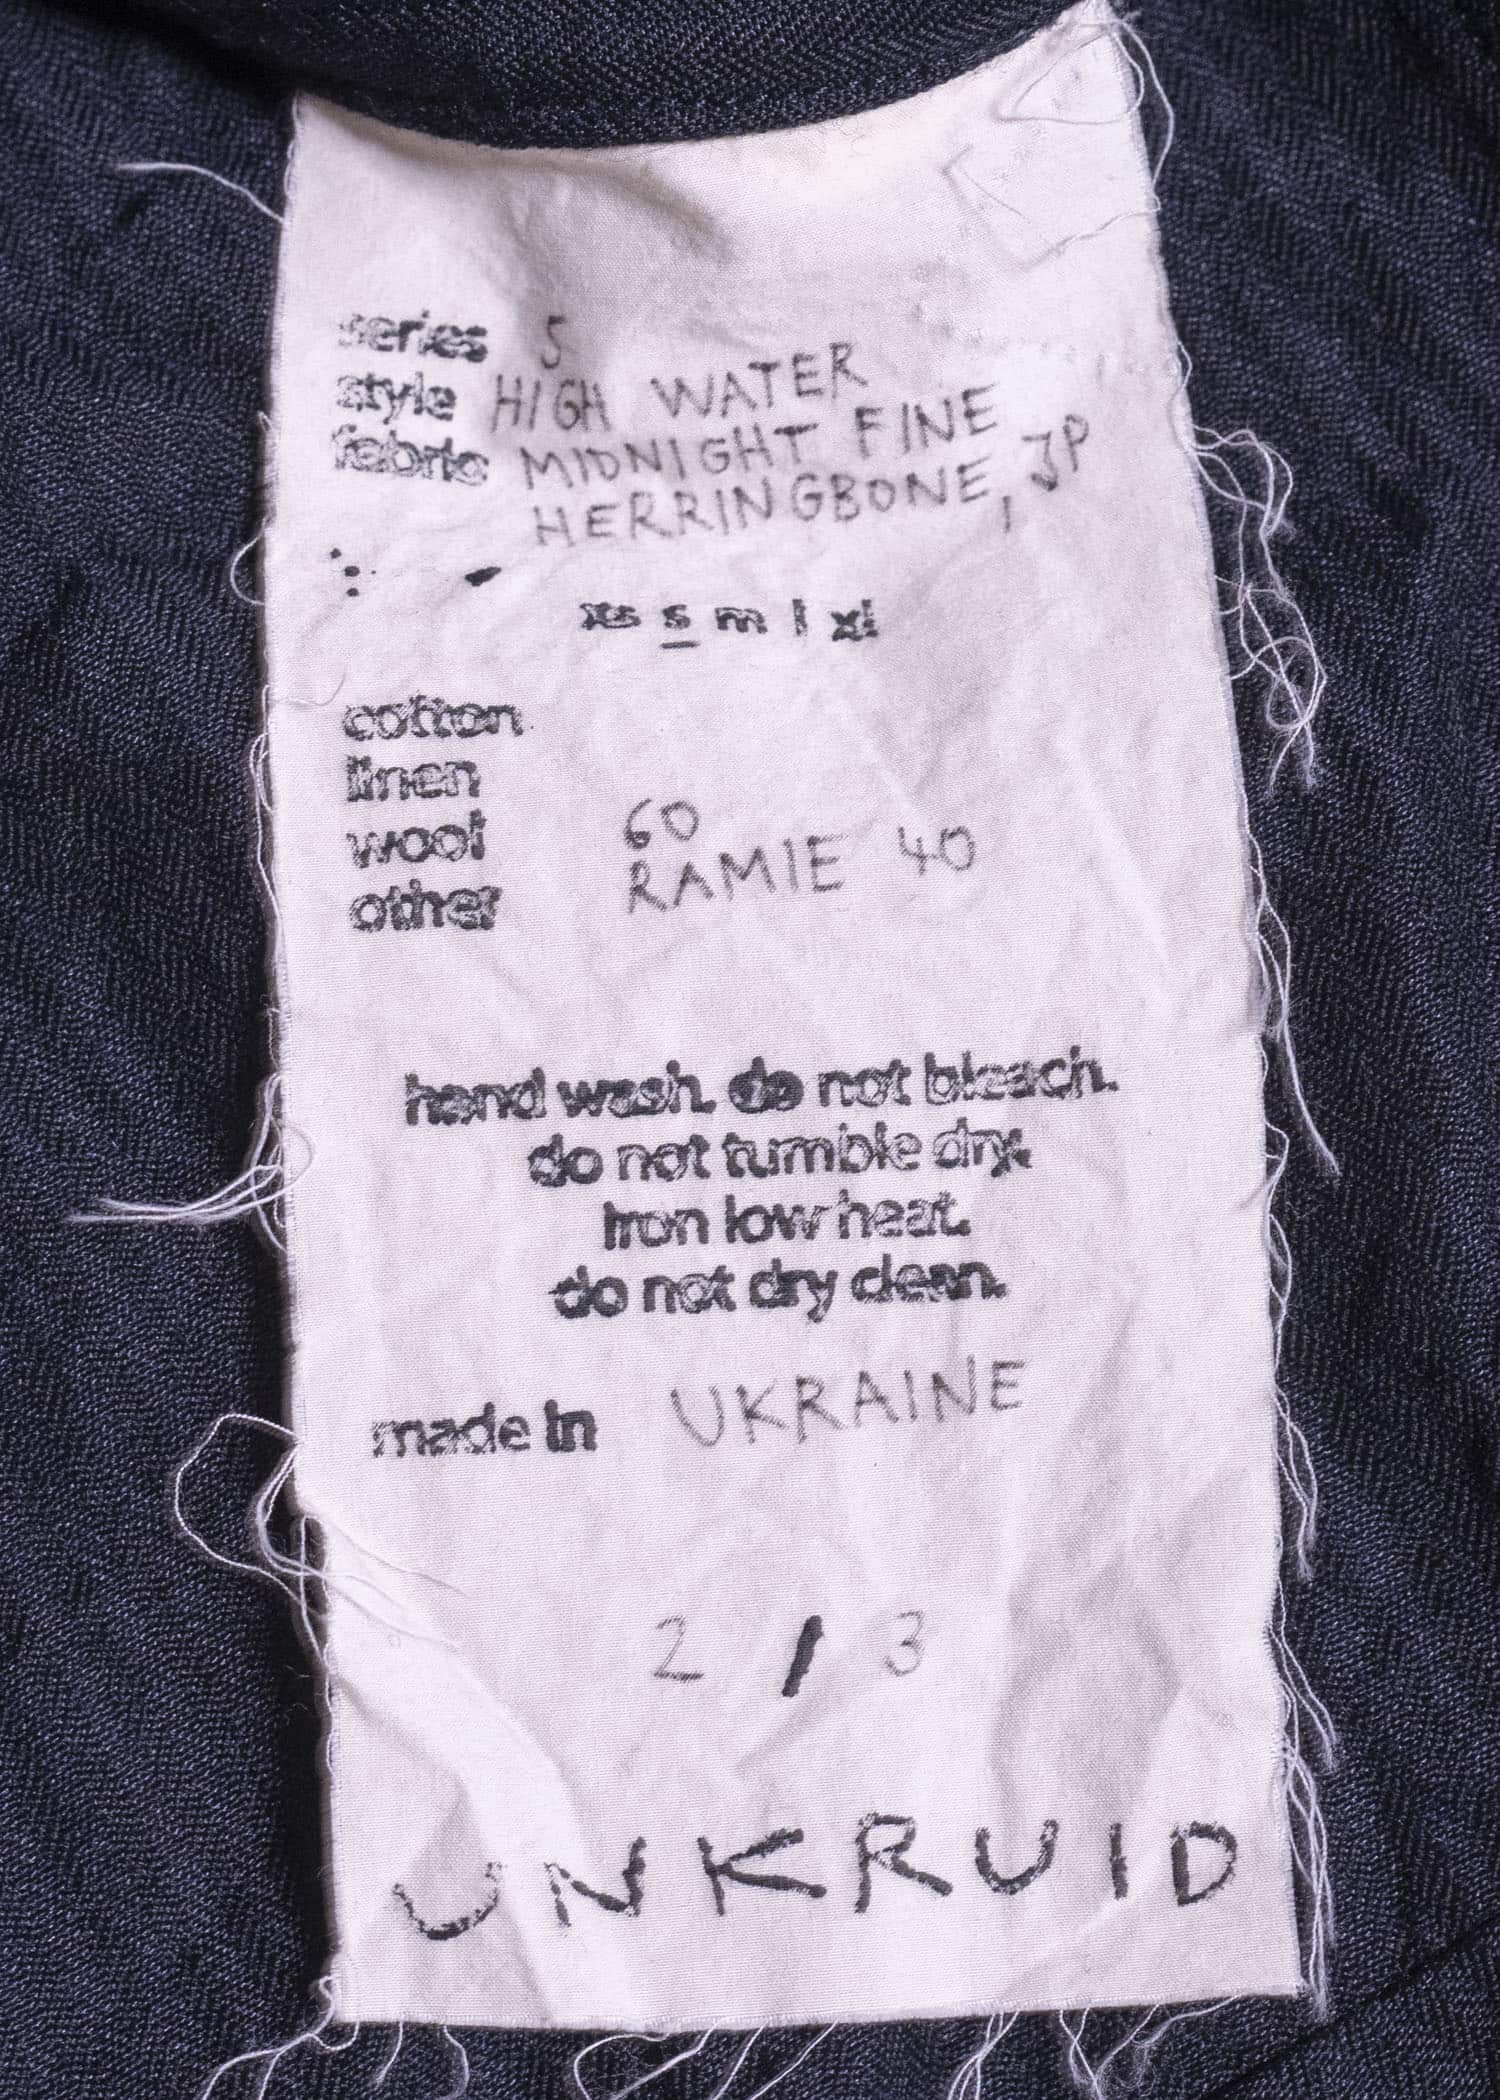 series 5
style HIGH WATER
fabric MIDNIGHT FINE
HERRINGBONE, JP
xs s m l xl
cotton
linen
wool 60
other RAMIE 40
hand wash. do not bleach.
do not tumble dry.
iron low heat.
do not dry clean.
made in UKRAINE
2 / 3
UNKRUID